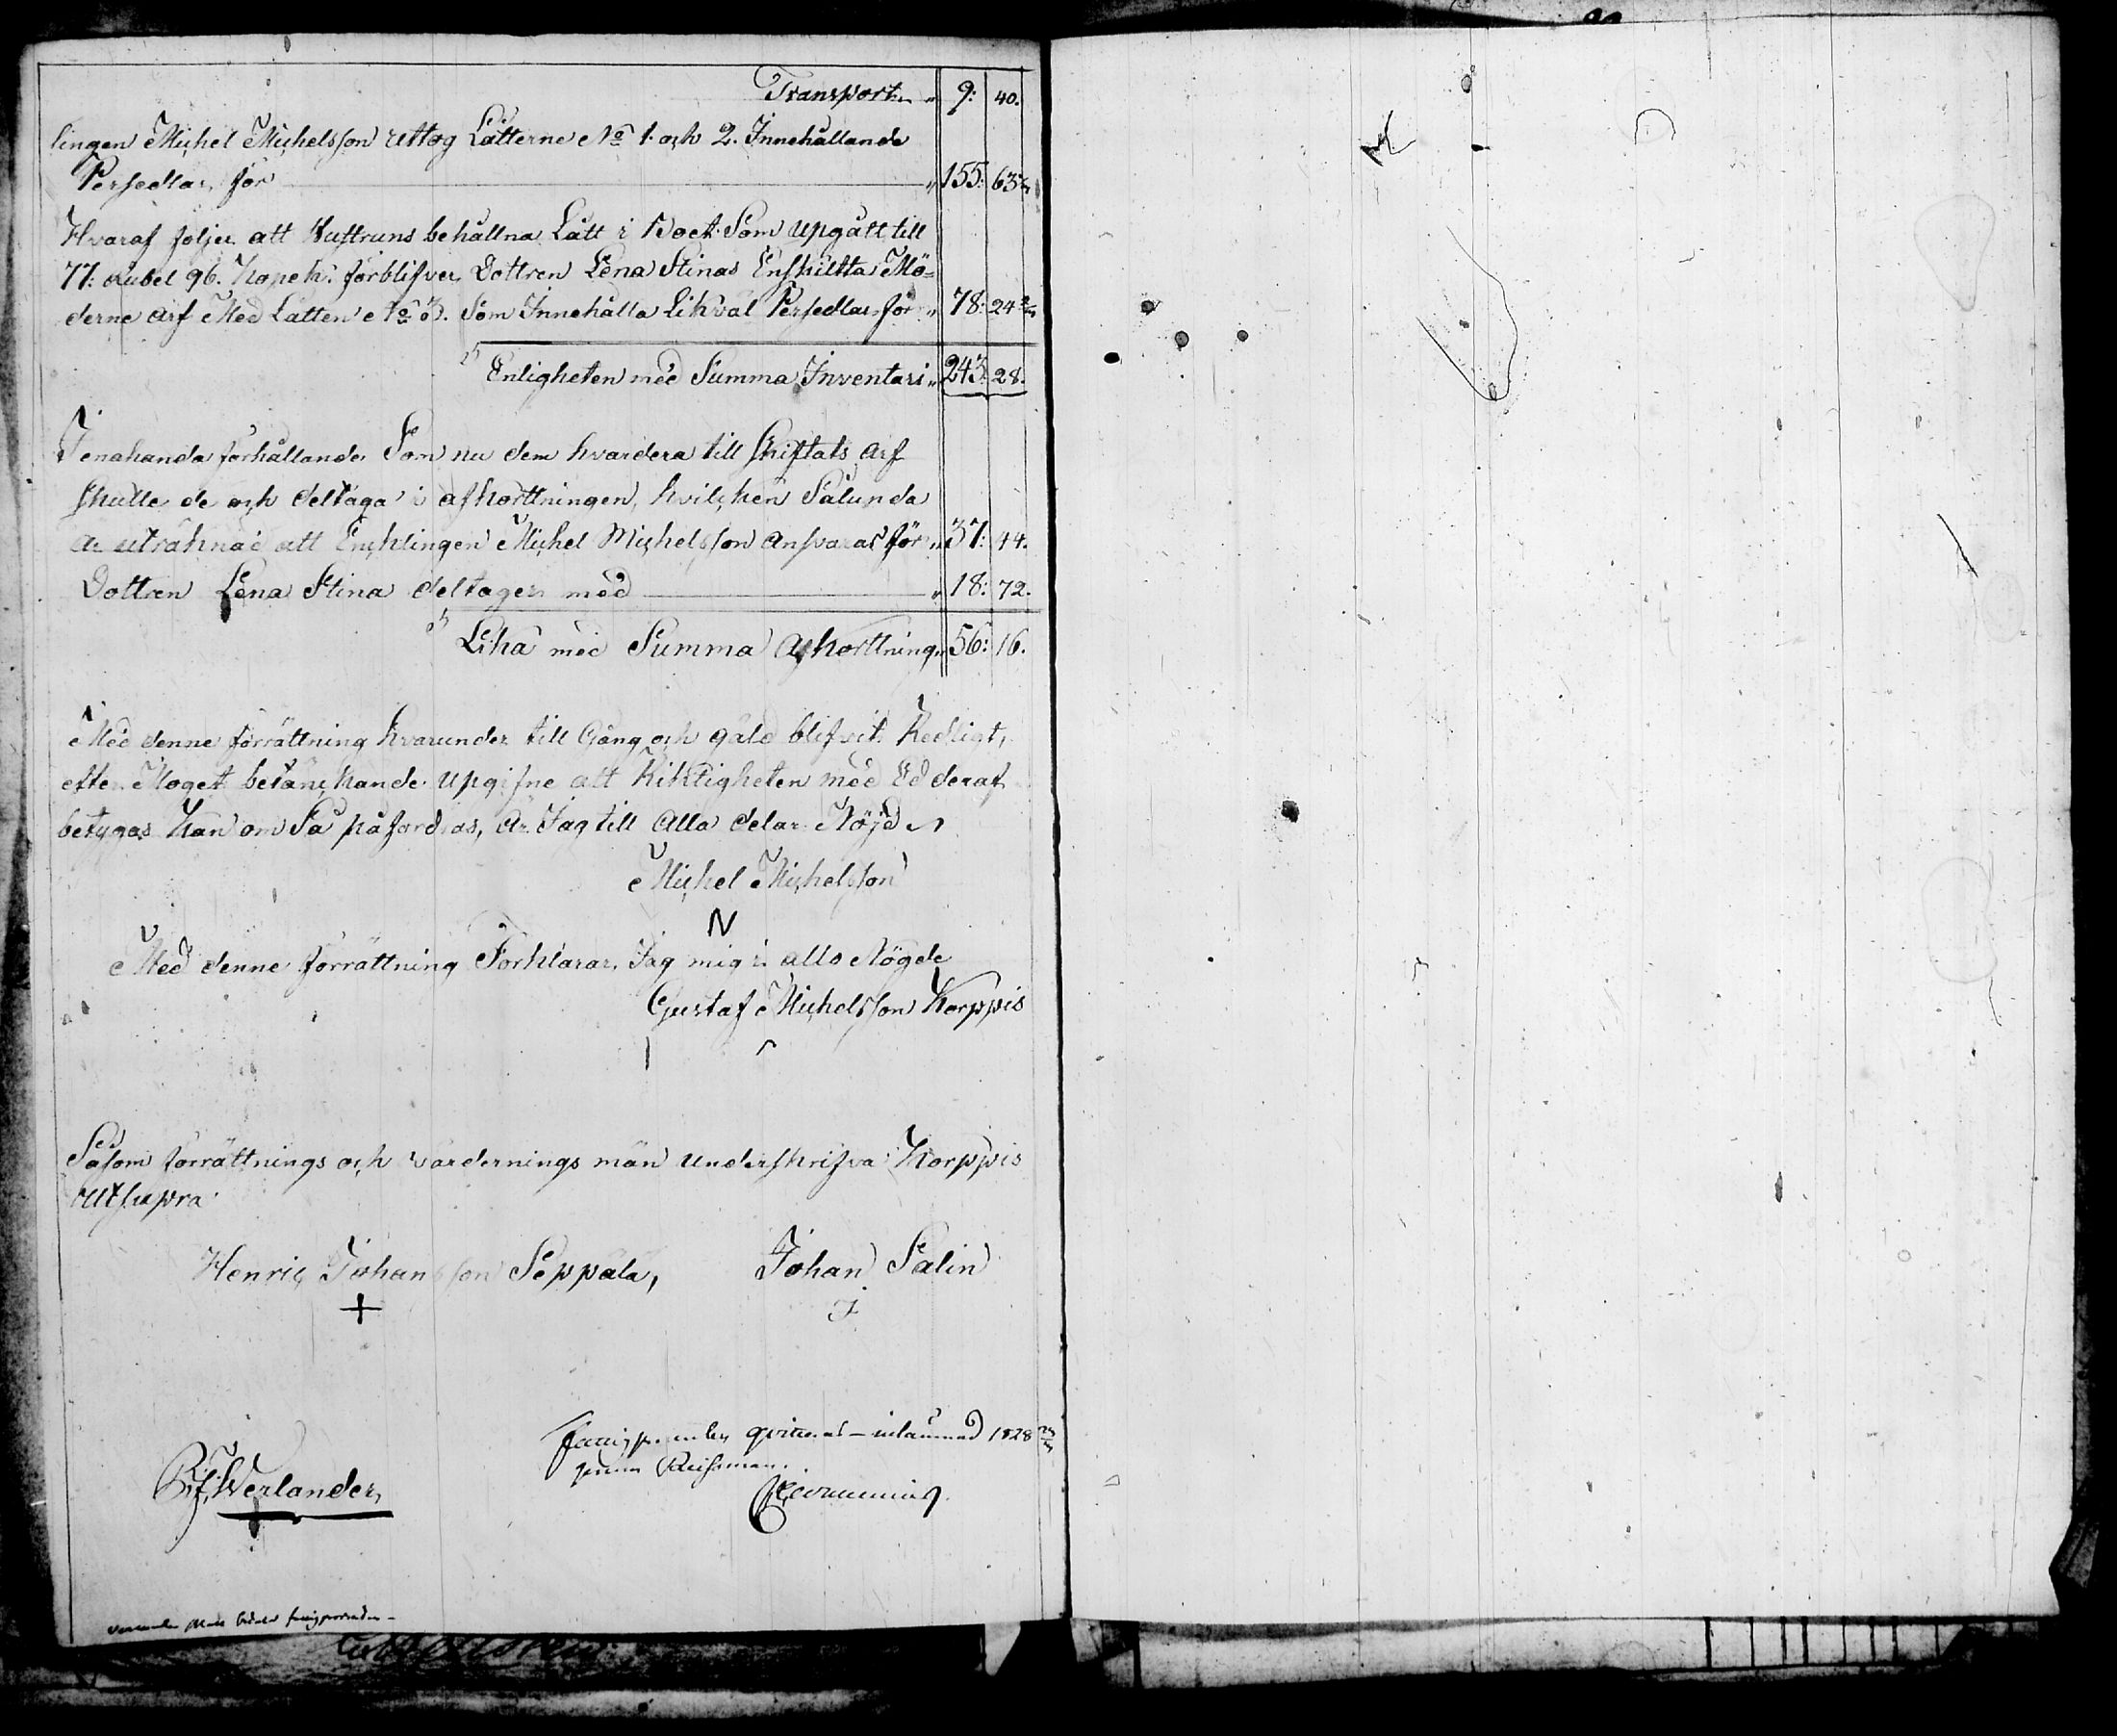 Transport „ 9: 40.
lingen Michel Michelsson uttog Låtterne No 1. och 2. Innehållande
Persedlar för „ 155: 63
Hvaraf följer att Hustruns behållna Lått i Boet Som upgått till
77: Rubel 96. Kopek: förblifver Dottren Lena Stinas Enskillta Mö-
derne arf Med Låtten No 3. Som Innehålla Likväl Persedlar för „ 78: 24
Enligheten med Summa Inventari „ 243: 28.
I enahanda förhållande Som nu dem hvardera till skiftats arf
skulle de och deltaga i afkorttningen, hvilcken Sålunda
är uträknad att Encklingen Michel Michelsson ansvarar för „ 37: 44.
Dottren Lena Stina deltager med „ 18: 72.
Lika med Summa afkorttning „ 56: 16.
Med denne förrättning hvarunder till Gång och gäld blifvit Redligt,
efter Moget betänckande upgifne att Riktigheten med Ed deraf
betygas kan om Så påfordras, är Jag till alla delar Nöjd
Michel Michelsson
N
Med denne förrättning Förklarar Jag mig i allo Nögde
Gustaf Michelsson Korppis
Såsom förrättnings och värdernings män underskrifva Korppis
utsupra
Henric Johansson Seppälä, Johan Salin
+
1828
Werlander